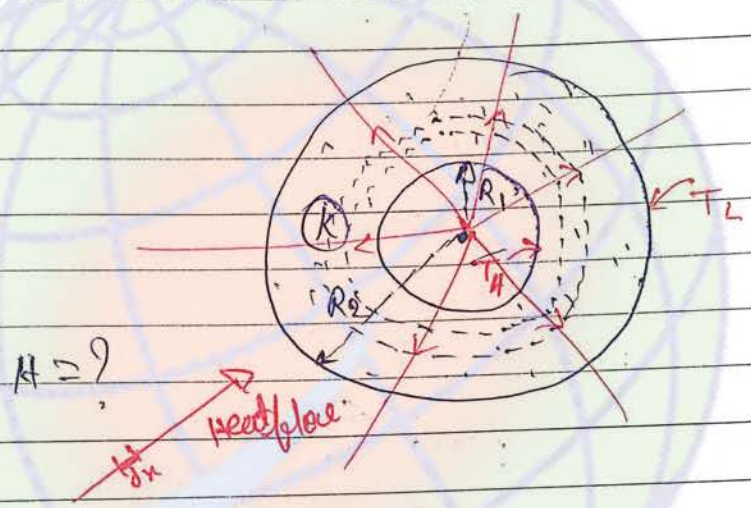 R₁
T_L
K
T_H
R₂
H = ?
Heatflow
dx